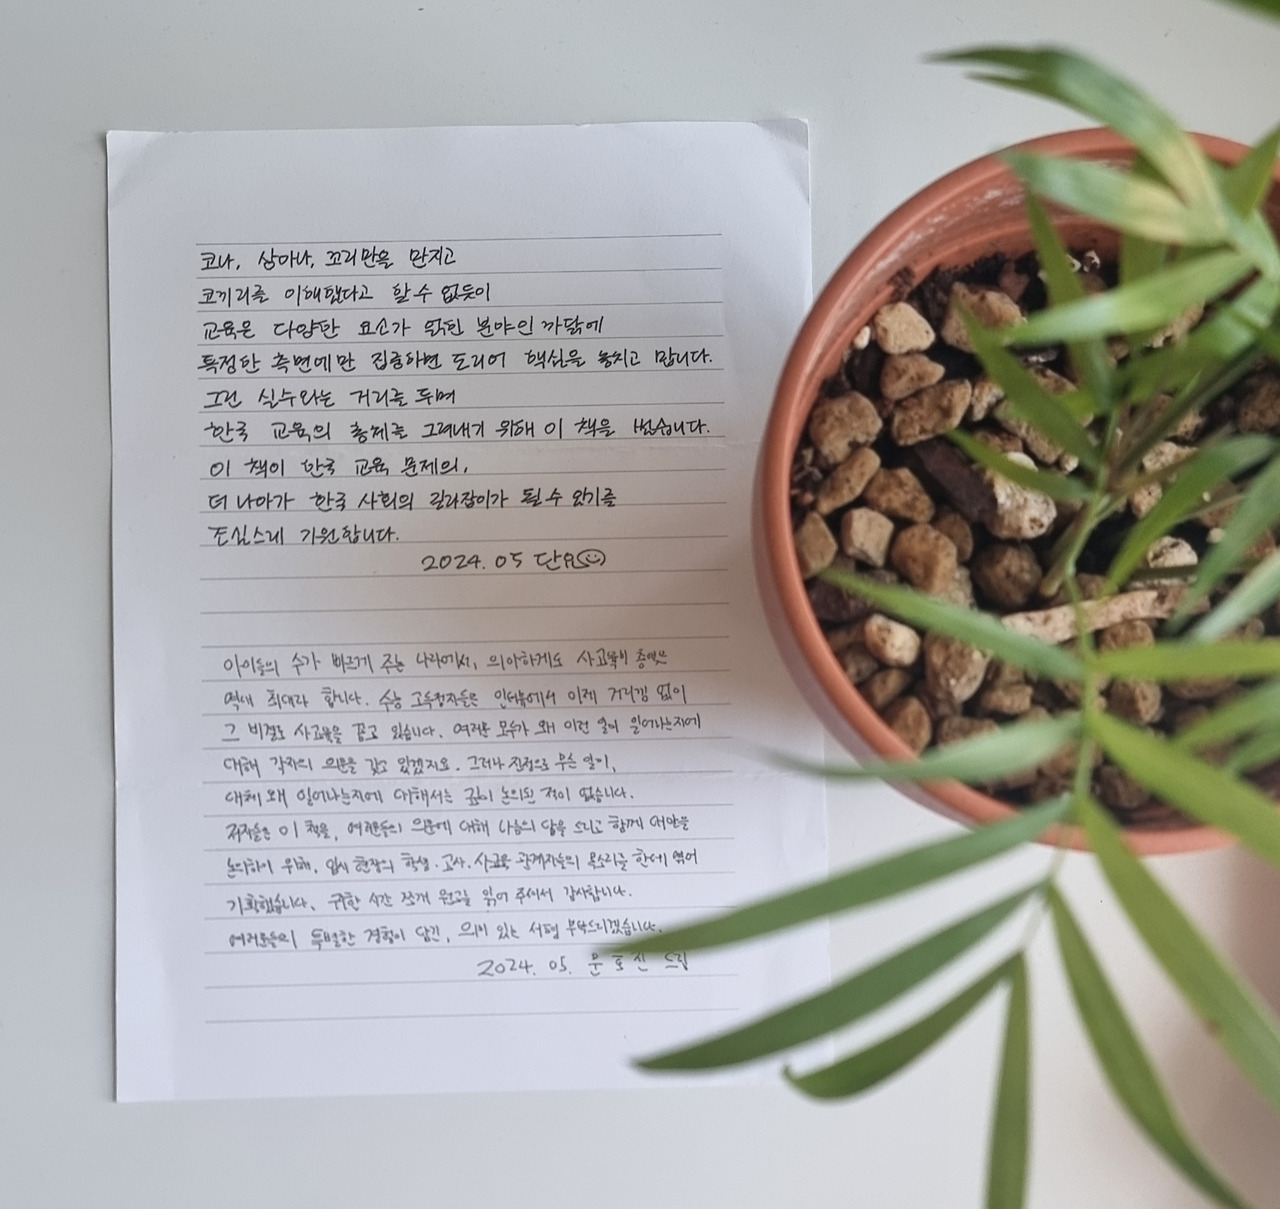 코나, 상아나, 꼬리만을 만지고
코끼리를 이해했다고 할 수 없듯이
교육은 다양한 요소가 얽힌 분야인 까닭에
특정한 측면에만 집중하면 도리어 핵심을 놓치고 맙니다.
그런 실수와는 거리를 두며
한국 교육의 총체를 그려내기 위해 이 책을 썼습니다.
이 책이 한국 교육 문제의,
더 나아가 한국 사회의 길라잡이가 될 수 있기를
조심스레 기원합니다.
2024. 05 단요
아이들의 수가 빠르게 주는 나라에서, 의아하게도 사교육비 총액은
역대 최대라 합니다. 수능 고득점자들은 인터뷰에서 이제 거리낌 없이
그 비결로 사교육을 꼽고 있습니다. 여러분 모두가 왜 이런 일이 일어나는지에
대해 각자의 의문을 갖고 있겠지요. 그러나 진정으로 무슨 일이,
대체 왜 일어나는지에 대해서는 깊이 논의된 적이 없습니다.
저자들은 이 책을, 여러분들의 의문에 대해 나름의 답을 드리고 함께 대안을
논의하기 위해, 입시 현장의 학생·교사·사교육 관계자들의 목소리를 한데 엮어
기획했습니다. 귀한 시간 쪼개 원고를 읽어 주셔서 감사합니다.
여러분들의 특별한 경험이 담긴, 의미 있는 서평 부탁드리겠습니다.
2024. 05. 문호진 드림